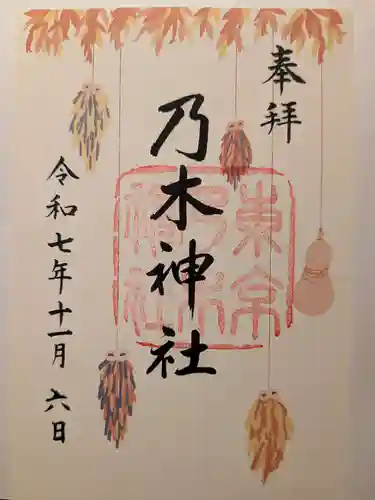 奉拝
乃木神社
東京乃木神社
令和七年十一月六日